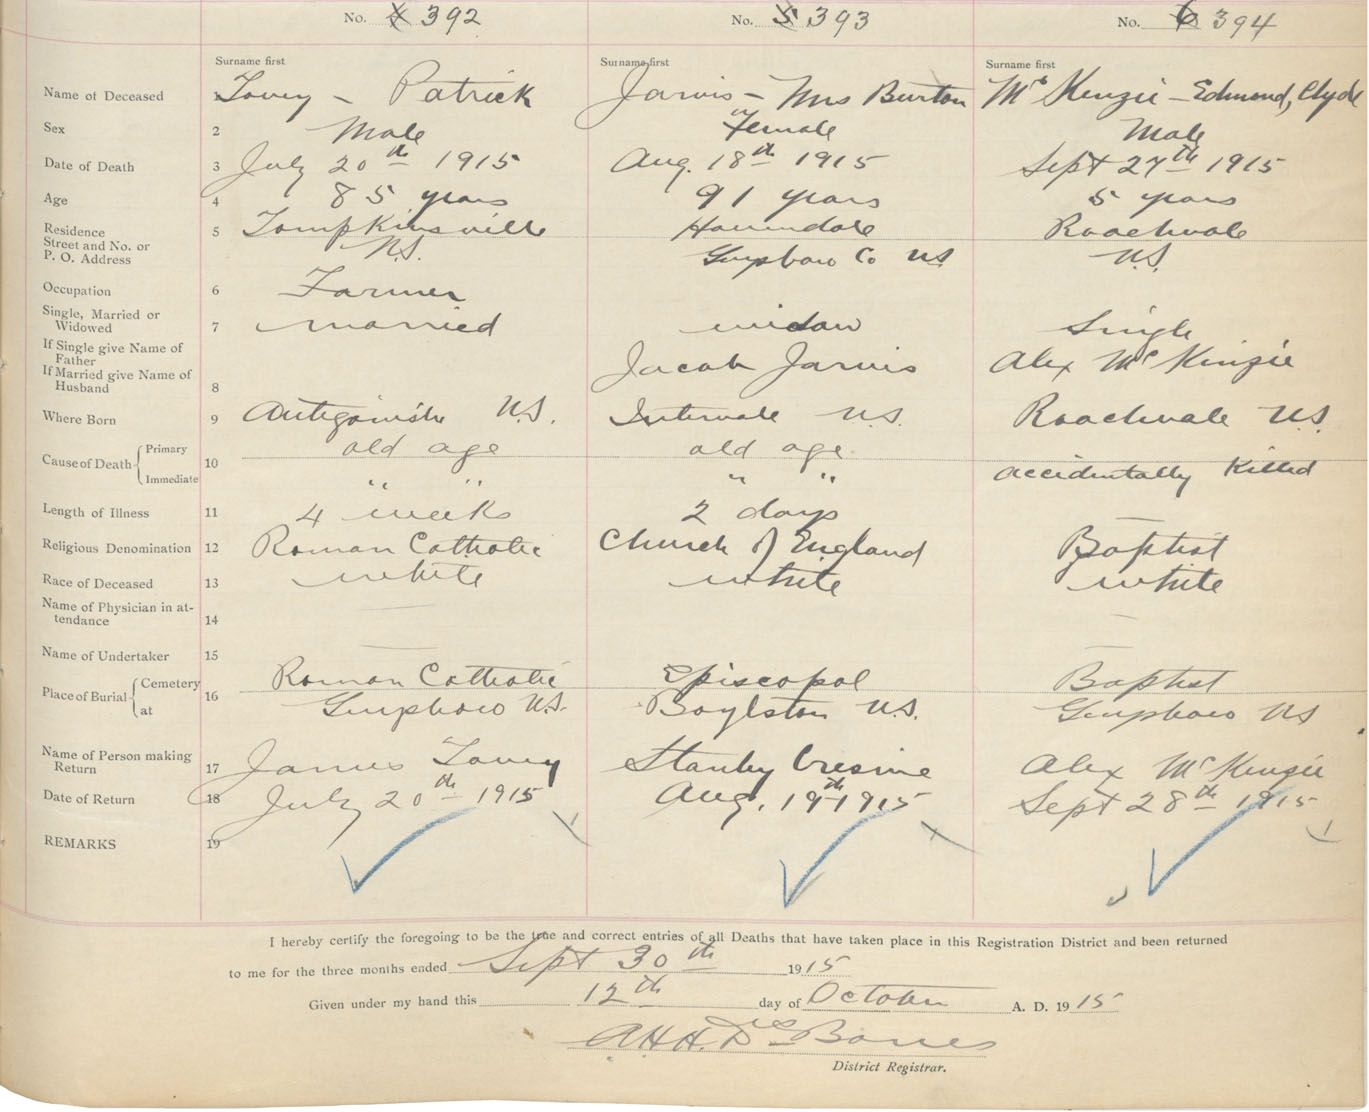 No. 4 392 No. 5 393 No. 6 394
Surname first Surname first Surname first
Name of Deceased 1 Tovey - Patrick Jarvis - Mrs Burton McKenzie - Edmond, Clyde
Sex 2 Male Female Male
Date of Death 3 July 20th 1915 Aug. 18th 1915 Sept 27th 1915
Age 4 85 years 91 years 5 years
Residence
Street and No. or
P. O. Address 5 Tompkinsville Roachvale
N.S. Guysboro Co N.S. N.S.
Occupation 6 Farmer
Single, Married or
Widowed 7 married widow Single
If Single give Name of
Father
If Married give Name of
Husband 8 Jacob Jarvis Alex McKinzie
Where Born 9 Antigonish N.S. Intervale N.S. Roachvale N.S.
Cause of Death Primary 10 old age old age accidentally Killed
Immediate " " " "
Length of Illness 11 4 weeks 2 days —
Religious Denomination 12 Roman Catholic Church of England Baptist
Race of Deceased 13 white white white
Name of Physician in at-
tendance 14 — —
Name of Undertaker 15 — —
Place of Burial Cemetery 16 Roman Catholic Episcopal Baptist
at Guysboro N.S. Boylston N.S. Guysboro NS
Name of Person making
Return 17 James Tovey Stanley Alex McKenzie
Date of Return 18 July 20th 1915 Aug. 19th 1915 Sept 28th 1915
REMARKS 19
I hereby certify the foregoing to be the true and correct entries of all Deaths that have taken place in this Registration District and been returned
to me for the three months ended Sept 30th 1915
Given under my hand this 12th day of October A. D. 1915
A.H.H. DesBarres
District Registrar.